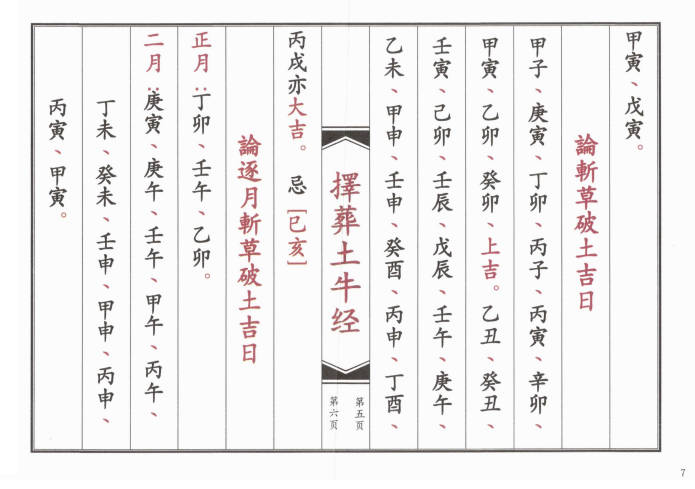 甲寅、戊寅。
論斬草破土吉日
甲子、庚寅、丁卯、丙子、丙寅、辛卯、
甲寅、乙卯、癸卯、上吉。乙丑、癸丑、
壬寅、己卯、壬辰、戊辰、壬午、庚午、
乙未、甲申、壬申、癸酉、丙申、丁酉、
擇葬土牛经
第五页
第六页
丙戌亦大吉。忌[巳亥]
論逐月斬草破土吉日
正月:丁卯、壬午、乙卯。
二月:庚寅、庚午、壬午、甲午、丙午、
丁未、癸未、壬申、甲申、丙申、
丙寅、甲寅。
7